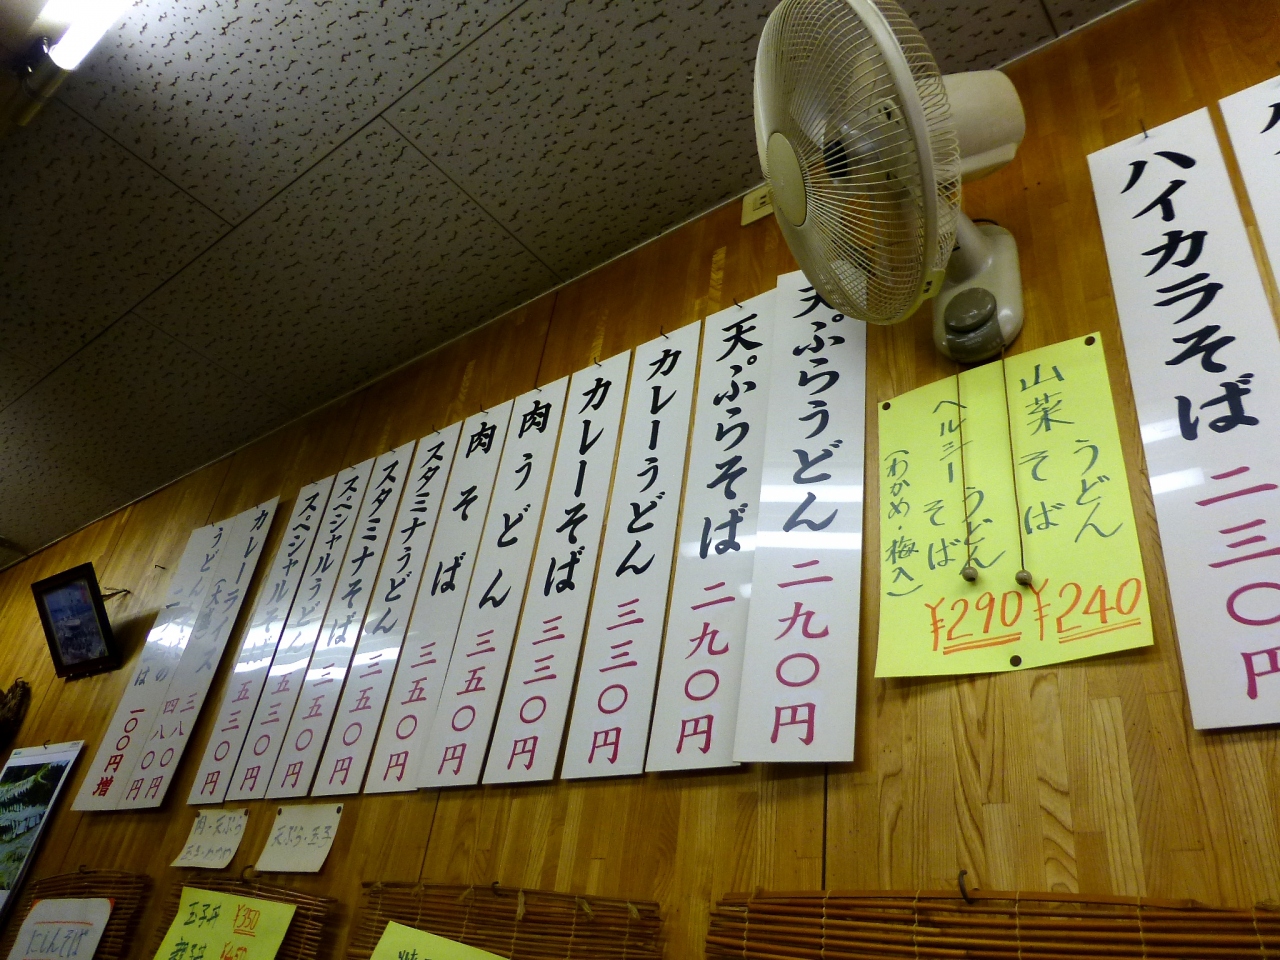 ハイカラそば 二三〇円
山菜 うどん
そば
¥240
ヘルシー うどん
そば
(わかめ・梅入)
¥290
天ぷらうどん 二九〇円
天ぷらそば 二九〇円
カレーうどん 三三〇円
カレーそば 三三〇円
肉うどん 三五〇円
肉そば 三五〇円
スタミナうどん 三五〇円
スタミナそば 三五〇円
スペシャルうどん 五三〇円
スペシャルそば 五三〇円
カレーライス
うどん
一〇〇円増
肉・天ぷら
天ぷら・玉子
にしんそば
玉子丼 ¥350